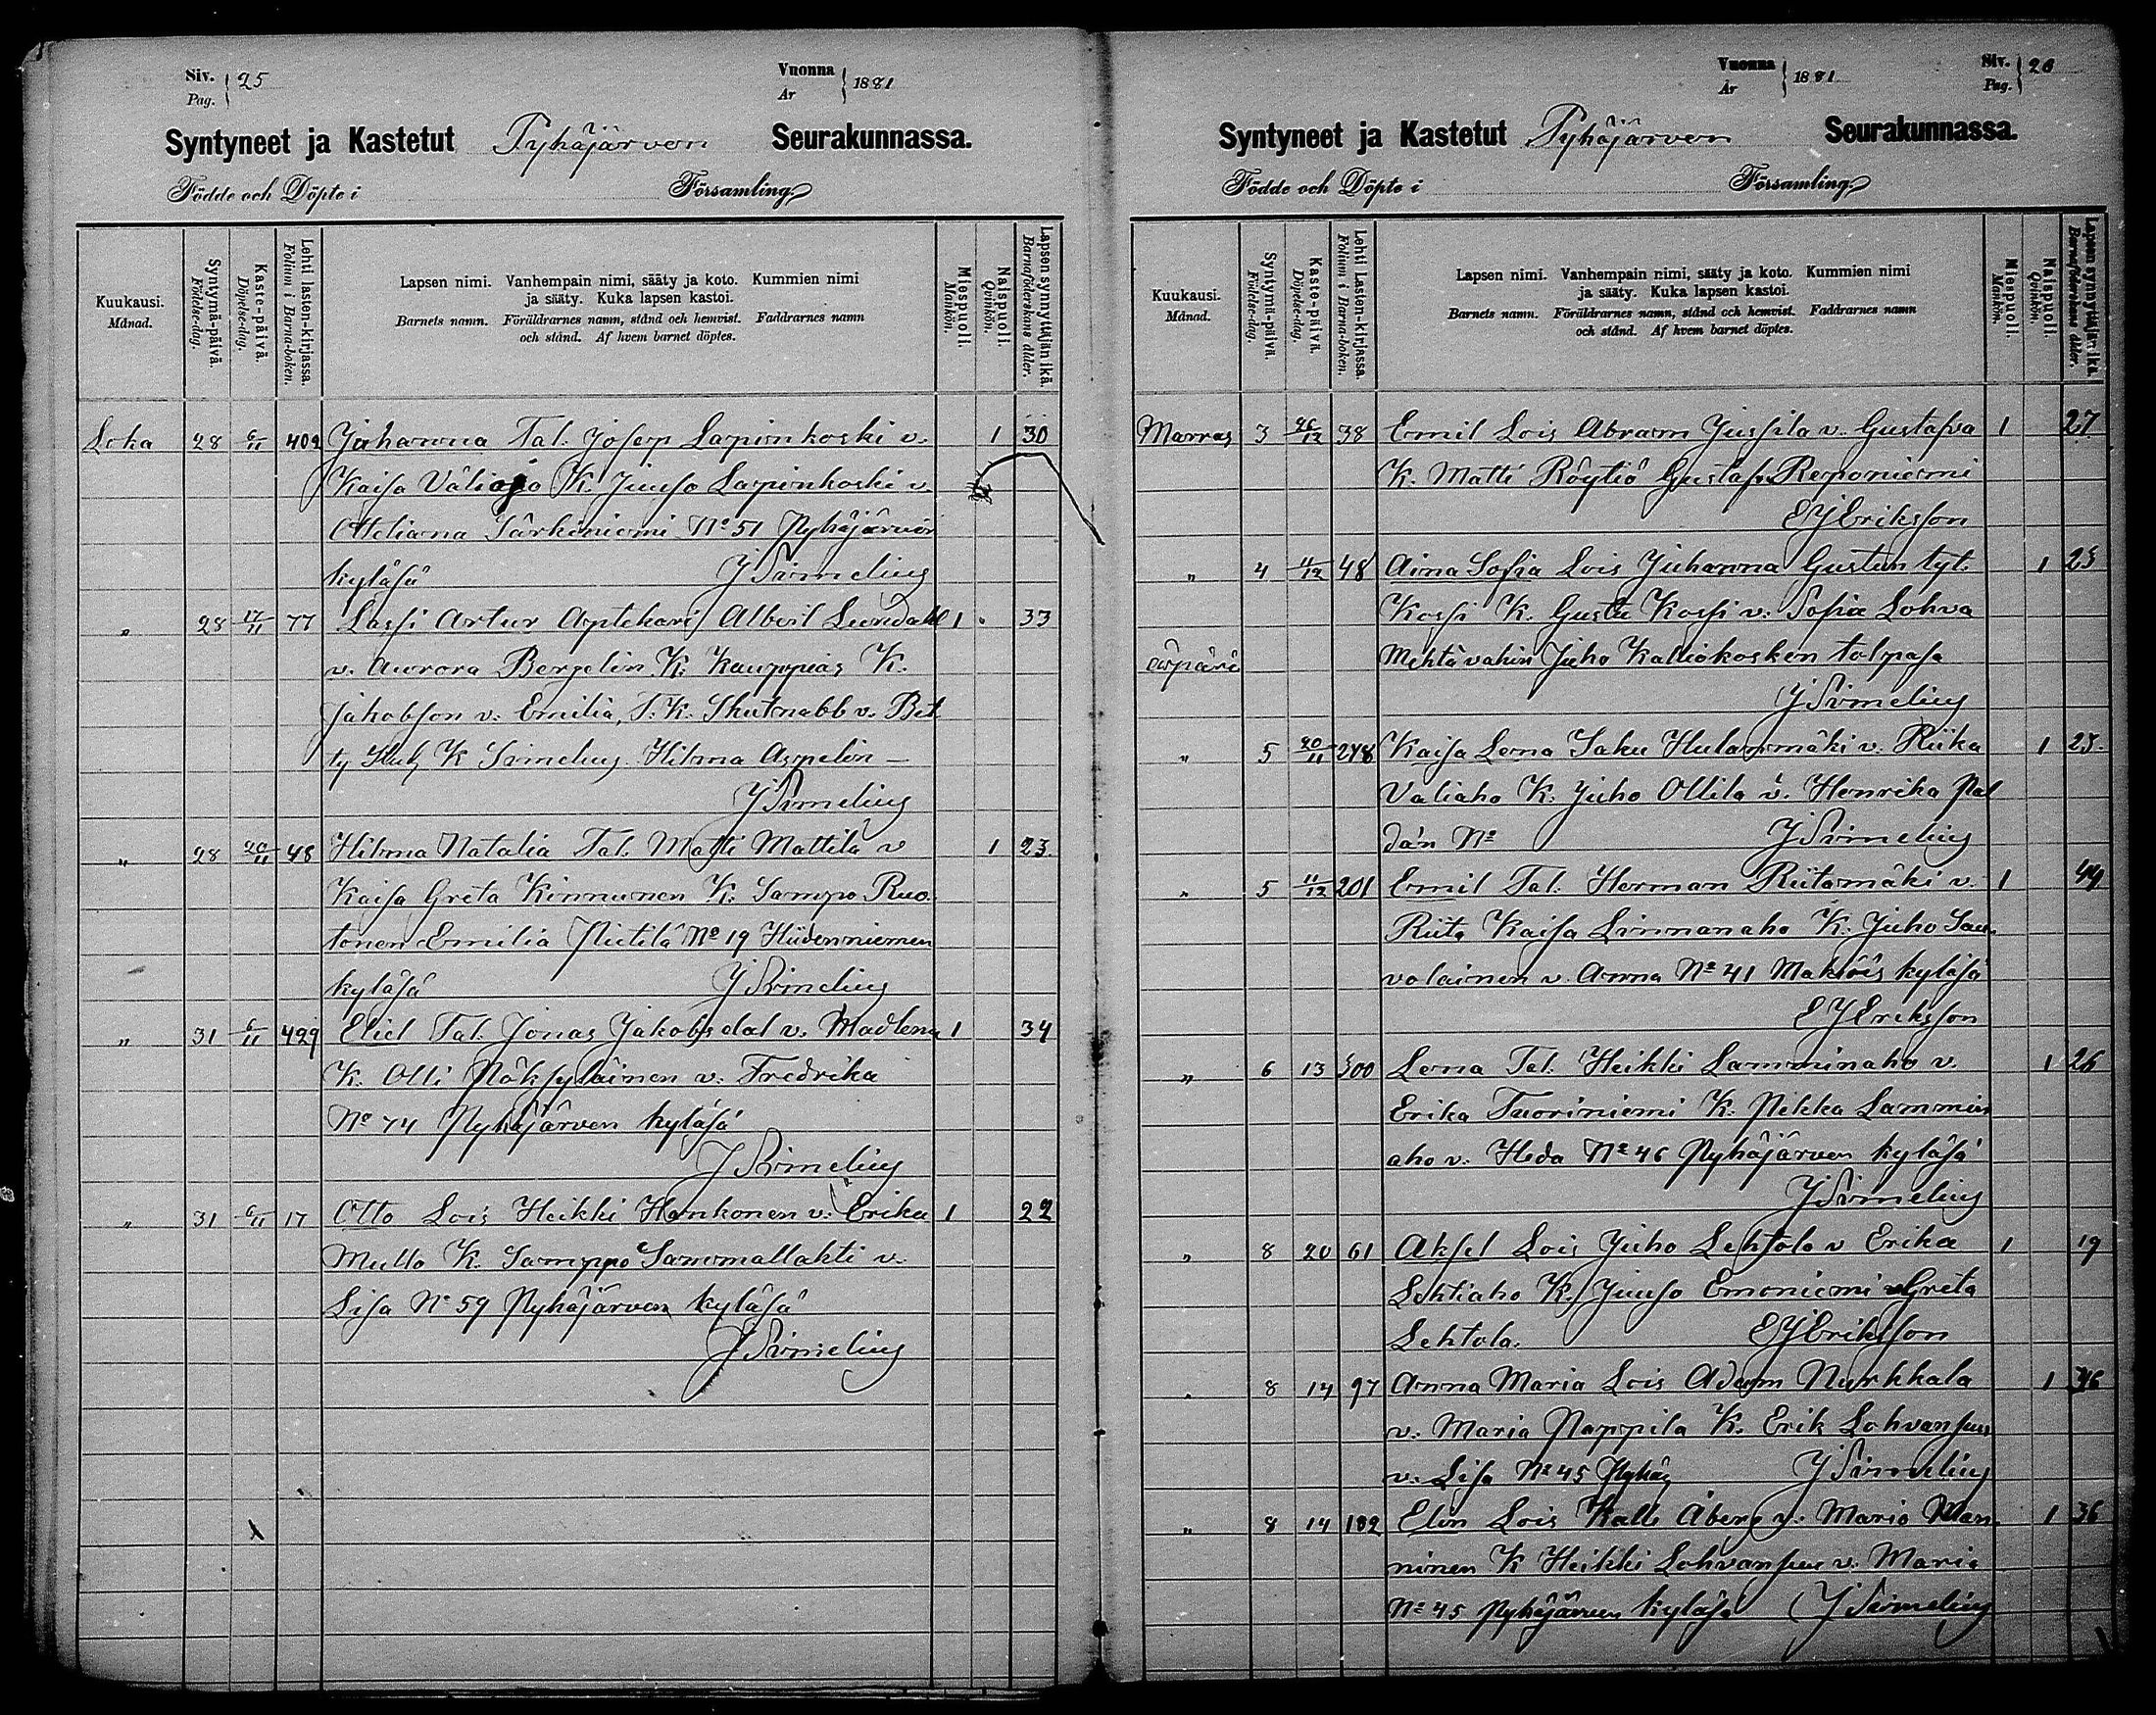 Siv. 25 Vuonna 1881
Pag. År
Syntyneet ja Kastetut Pyhäjärven Seurakunnassa.
Födde och Döpte i Församling.
Kuukausi. Månad.
Syntymä-päivä. Födelse-dag.
Kaste-päivä. Döpelse-dag.
Lehti lasten-kirjassa. Folium i Barna-boken.
Lapsen nimi. Vanhempain nimi, sääty ja koto. Kummien nimi
ja sääty. Kuka lapsen kastoi.
Barnets namn. Föräldrarnes namn, stånd och hemvist. Faddrarnes namn
och stånd. Af hvem barnet döptes.
Miespuoli. Mankön.
Naispuoli. Qvinkön.
Lapsen synnyttäjän ikä. Barnaföderskans ålder.
Loka 28 6/11 409 Johanna Tal. Josep Lapinkoski v. 1 30
Kaisa Väliajo K. Juuso Lapinkoski v.
Otteliana Särkiniemi No 51 Pyhäjärven
kyläsä J Simelius
" 28 17/11 77 Lassi Artur Aptekari Albert Lundahl 1 33
v. Aurora Bergelin K. Kauppias K.
Jakobson v. Emilia, T. K. Skutnabb v. Bet
ty K Simelius Hilma Appelin —
J Simelius
" 28 20/11 48 Hilma Natalia Tal. Matti Mattila v 1 23.
Kaisa Greta Kinnunen K. Sampo Ruo
tonen Emilia Pietilä No 19 Hiidenniemen
kyläsä J Simelius
" 31 6/11 429 Eliel Tal. Jonas Jakobsdal v. Madlena 1 34
K. Olli Pöksyläinen v. Fredrika
No 74 Pyhäjärven kyläsä
J Simelius
" 31 6/11 17 Otto Lois Heikki Honkonen v. Erika 1 22
Mullo K. Samppo Sammallahti v.
Lisa No 59 Pyhäjärven kyläsä
J Simelius
Vuonna 1881 Siv. 26
År Pag.
Syntyneet ja Kastetut Pyhäjärven Seurakunnassa.
Födde och Döpte i Församling.
Kuukausi. Månad.
Syntymä-päivä. Födelse-dag.
Kaste-päivä. Döpelse-dag.
Lehti Lasten-kirjassa. Folium i Barna-boken.
Lapsen nimi. Vanhempain nimi, sääty ja koto. Kummien nimi
ja sääty. Kuka lapsen kastoi.
Barnets namn. Föräldrarnes namn, stånd och hemvist. Faddrarnes namn
och stånd. Af hvem barnet döptes.
Miespuoli. Mankön.
Naispuoli. Qvinkön.
Lapsen synnyttäjän ikä. Barnaföderskans ålder.
Marras 3 26/12 38 Emil Lois Abram Jussila v. Gustafva 1 27
K. Matti Röytiö Gustafva Reponiemi
E J Eriksson
" 4 11/12 48 Aina Sofia Lois Juhanna Gustun tyt. 1 25
Kossi K. Gustu Kossi v. Sofia Lohva
äpärä Mehtävahin Juho Kalliokosken tolpasa
J Simelius
" 5 20/11 248 Kaisa Lena Saku Hulammäki v. Riika 1 25.
Valiaho K. Juho Ollila v. Henrika Pal
dán No J Simelius
" 5 11/12 201 Emil Tal. Herman Riitamäki v. 1 44
Riita Kaisa Linnanaho K. Juho Sau
volainen v. Anna No 41 Makiöis kyläsä
E J Eriksson
" 6 13 500 Lena Tal. Heikki Lamminaho v. 1 26
Erika Tuoriniemi K. Pekka Lammin
aho v. Heda No 46 Pyhäjärven kyläsä
J Simelius
" 8 20 61 Aksel Lois Juho Lehtola v Erika 1 19
Lehtiaho K. Juuso Emoniemi v Greta
Lehtola. E J Eriksson
" 8 14 97 Anna Maria Lois Adam Nurkkala 1 36
v. Maria Pappila K. Erik Lohvansuu
v. Lisa No 45 Pyhäj J Simelius
" 8 14 182 Elin Lois Kalle Åberg v. Maria Man 1 36
ninen K Heikki Lohvansuu v. Maria
No 45 Pyhäjärven kyläsä J Simelius